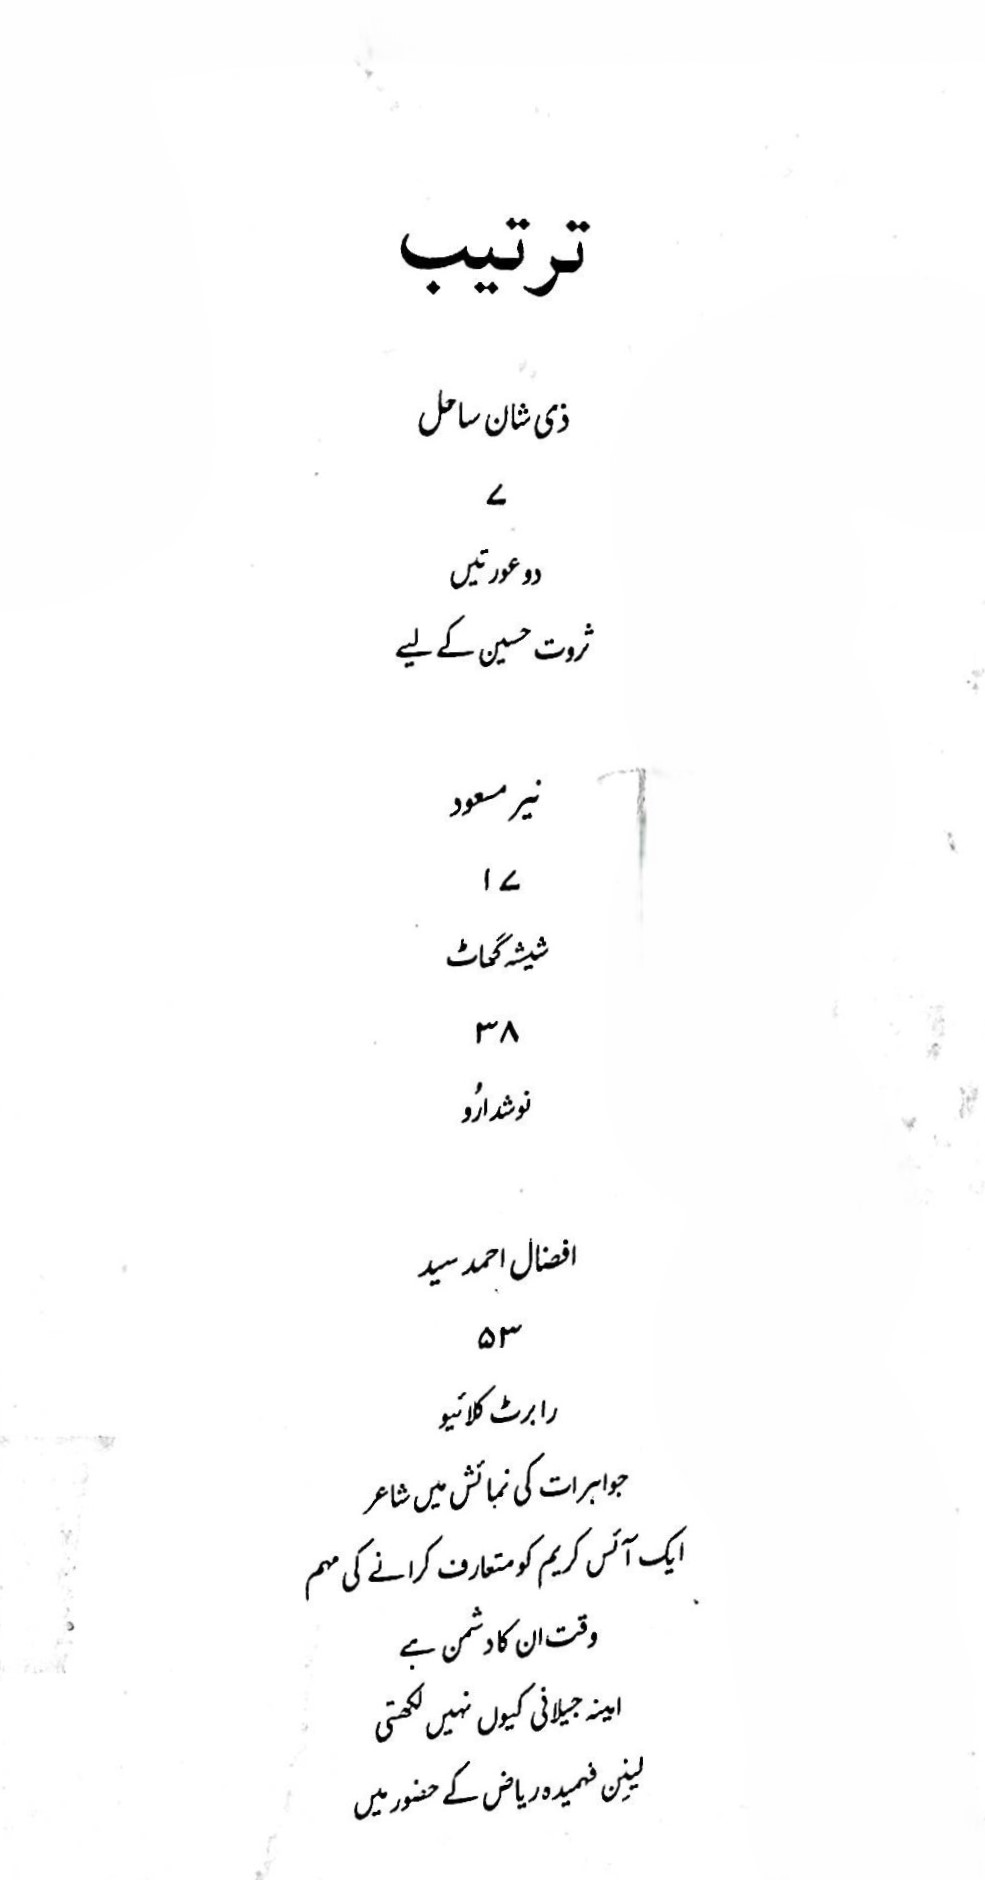 ترتیب
ذی شان ساحل
۷
دو عورتیں
ثروت حسین کے لیے
نیر مسعود
۱۷
شیشہ گھاٹ
۳۸
نوشدارُو
افضال احمد سید
۵۳
رابرٹ کلائیو
جواہرات کی نمائش میں شاعر
ایک آئس کریم کو متعارف کرانے کی مہم
وقت ان کا دشمن ہے
امینہ جیلانی کیوں نہیں لکھتی
لینِن فہمیدہ ریاض کے حضور میں